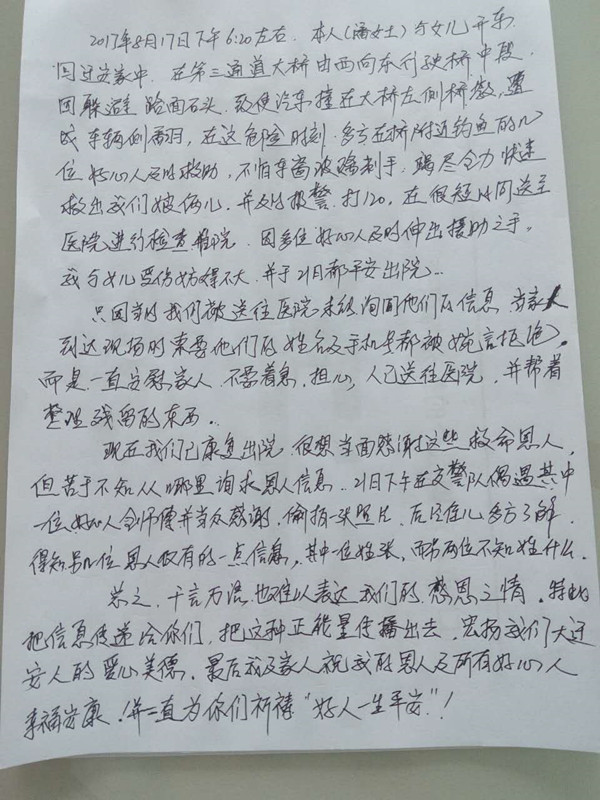 2017年8月17日下午6:20左右.本人(潘女士)与女儿开车
回迁安家中.在第三通道大桥由西向东行驶桥中段
因躲避路面石头.致使汽车撞在大桥左侧桥墩,造
成车辆侧翻,在这危险时刻.多亏在桥附近钓鱼的几
位好心人及时救助,不怕车窗玻璃刺手.竭尽全力快速
救出我们娘俩儿.并及时报警.打120.在很短时间送至
医院进行检查住院.因多位好心人及时伸出援助之手。
我与女儿受伤妨碍不大.并于21日都平安出院..
只因当时我们被送往医院未经询问他们的信息.当家人
到达现场时索要他们的姓名及手机号都被婉言拒绝,
而是一直安慰家人.不要着急,担心,人已送往医院,并帮着
整理残留的东西..
现在我们已康复出院.很想当面答谢这些救命恩人,
但苦于不知从哪里询求恩人信息.21日下午在交警队偶遇其中
一位好心人 师傅并当众感谢.偷拍一张照片.后经 多方了解.
得知另几位恩人仅有的一点信息,其中一位姓张,而另两位不知姓什么.
总之.千言万语.也难以表达我们的感恩之情.特此
把信息传递给你们.把这种正能量传播出去.宏扬我们大迁
安人的爱心美德.最后我及家人祝我的恩人及所有好心人
幸福安康!并一直为你们祈祷"好人一生平安"!